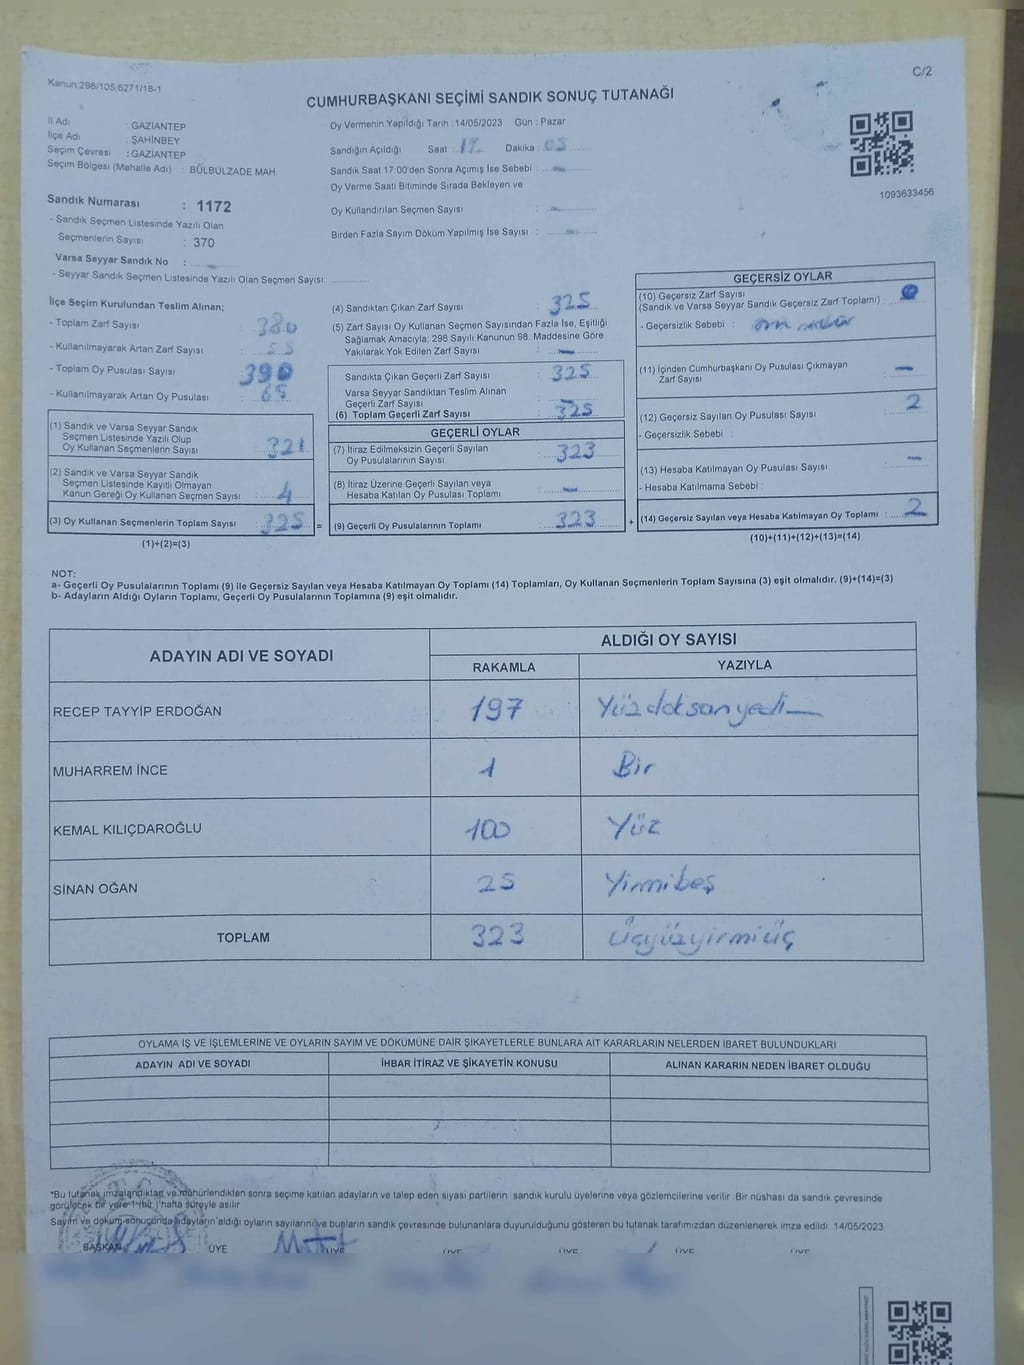 Kanun:298/105;6271/18-1
C/2
CUMHURBAŞKANI SEÇİMİ SANDIK SONUÇ TUTANAĞI
İl Adı : GAZİANTEP
İlçe Adı : ŞAHİNBEY
Seçim Çevresi : GAZİANTEP
Seçim Bölgesi (Mahalle Adı) : BÜLBÜLZADE MAH.
Sandık Numarası : 1172
- Sandık Seçmen Listesinde Yazılı Olan
Seçmenlerin Sayısı : 370
Varsa Seyyar Sandık No :
- Seyyar Sandık Seçmen Listesinde Yazılı Olan Seçmen Sayısı:
Oy Vermenin Yapıldığı Tarih :14/05/2023 Gün : Pazar
Sandığın Açıldığı Saat : 17 Dakika : 05
Sandık Saat 17:00'den Sonra Açımış İse Sebebi : -
Oy Verme Saati Bitiminde Sırada Bekleyen ve
Oy Kullandırılan Seçmen Sayısı : -
Birden Fazla Sayım Döküm Yapılmış İse Sayısı : -
1093633456
İlçe Seçim Kurulundan Teslim Alınan;
- Toplam Zarf Sayısı : 380
- Kullanılmayarak Artan Zarf Sayısı :
- Toplam Oy Pusulası Sayısı 390
- Kullanılmayarak Artan Oy Pusulası : 65
(1) Sandık ve Varsa Seyyar Sandık
Seçmen Listesinde Yazılı Olup
Oy Kullanan Seçmenlerin Sayısı : 321
(2) Sandık ve Varsa Seyyar Sandık
Seçmen Listesinde Kayıtlı Olmayan
Kanun Gereği Oy Kullanan Seçmen Sayısı : 4
(3) Oy Kullanan Seçmenlerin Toplam Sayısı : 325 =
(1)+(2)=(3)
(4) Sandıktan Çıkan Zarf Sayısı : 325
(5) Zarf Sayısı Oy Kullanan Seçmen Sayısından Fazla İse, Eşitliği
Sağlamak Amacıyla; 298 Sayılı Kanunun 98. Maddesine Göre
Yakılarak Yok Edilen Zarf Sayısı : -
Sandıkta Çıkan Geçerli Zarf Sayısı : 325
Varsa Seyyar Sandıktan Teslim Alınan
Geçerli Zarf Sayısı : -
(6) Toplam Geçerli Zarf Sayısı : 325
GEÇERLİ OYLAR
(7) İtiraz Edilmeksizin Geçerli Sayılan
Oy Pusulalarının Sayısı : 323
(8) İtiraz Üzerine Geçerli Sayılan veya
Hesaba Katılan Oy Pusulası Toplamı : -
(9) Geçerli Oy Pusulalarının Toplamı : 323 +
GEÇERSİZ OYLAR
(10) Geçersiz Zarf Sayısı
(Sandık ve Varsa Seyyar Sandık Geçersiz Zarf Toplamı) :
- Geçersizlik Sebebi :
(11) İçinden Cumhurbaşkanı Oy Pusulası Çıkmayan
Zarf Sayısı : -
(12) Geçersiz Sayılan Oy Pusulası Sayısı : 2
- Geçersizlik Sebebi :
(13) Hesaba Katılmayan Oy Pusulası Sayısı : -
- Hesaba Katılmama Sebebi :
(14) Geçersiz Sayılan veya Hesaba Katılmayan Oy Toplamı : 2
(10)+(11)+(12)+(13)=(14)
NOT:
a- Geçerli Oy Pusulalarının Toplamı (9) ile Geçersiz Sayılan veya Hesaba Katılmayan Oy Toplamı (14) Toplamları, Oy Kullanan Seçmenlerin Toplam Sayısına (3) eşit olmalıdır. (9)+(14)=(3)
b- Adayların Aldığı Oyların Toplamı, Geçerli Oy Pusulalarının Toplamına (9) eşit olmalıdır.
ADAYIN ADI VE SOYADI ALDIĞI OY SAYISI
RAKAMLA YAZIYLA
RECEP TAYYİP ERDOĞAN 197 Yüzdoksanyedi
MUHARREM İNCE 1 Bir
KEMAL KILIÇDAROĞLU 100 Yüz
SİNAN OĞAN 25 Yirmibeş
TOPLAM 323 Üçyüzyirmiüç
OYLAMA İŞ VE İŞLEMLERİNE VE OYLARIN SAYIM VE DÖKÜMÜNE DAİR ŞİKAYETLERLE BUNLARA AİT KARARLARIN NELERDEN İBARET BULUNDUKLARI
ADAYIN ADI VE SOYADI İHBAR İTİRAZ VE ŞİKAYETİN KONUSU ALINAN KARARIN NEDEN İBARET OLDUĞU
*Bu tutanak imzalandıktan ve mühürlendikten sonra seçime katılan adayların ve talep eden siyasi partilerin sandık kurulu üyelerine veya gözlemcilerine verilir Bir nüshası da sandık çevresinde
görülecek bir yere 1 (bir ) hafta süreyle asılır
Sayım ve döküm sonucunda adayların aldığı oyların sayılarını ve bunların sandık çevresinde bulunanlara duyurulduğunu gösteren bu tutanak tarafımızdan düzenlenerek imza edildi 14/05/2023
BAŞKAN ÜYE ÜYE ÜYE ÜYE ÜYE ÜYE